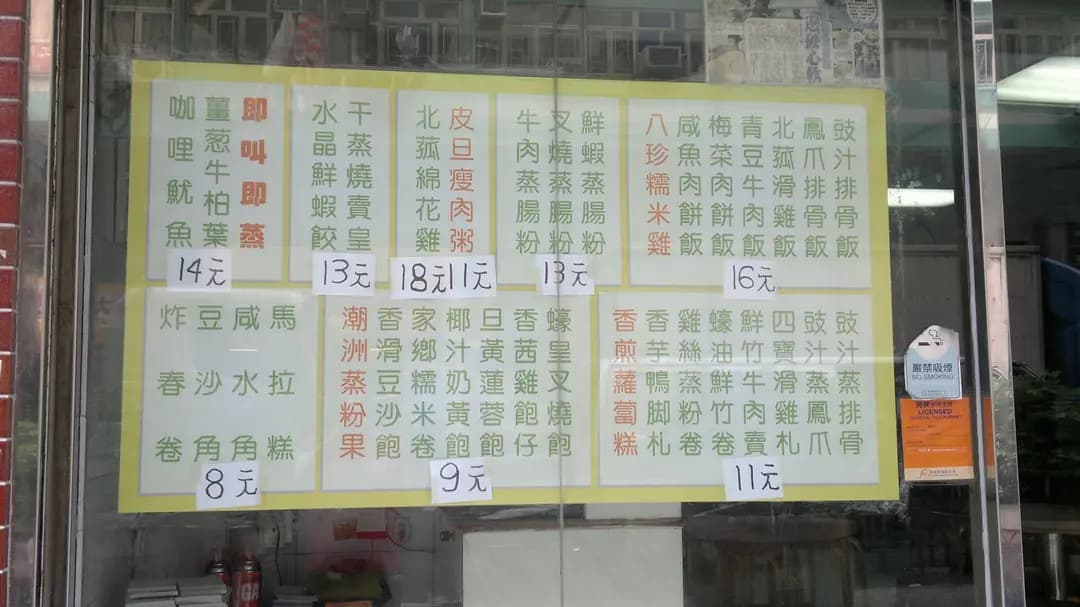 豉汁排骨飯
鳳爪排骨飯
北菰滑雞飯
青豆牛肉飯
梅菜肉餅飯
咸魚肉餅飯
八珍糯米雞
16元
鮮蝦蒸腸粉
叉燒蒸腸粉
牛肉蒸腸粉
13元
皮旦瘦肉粥
北菰綿花雞
18元11元
干蒸燒賣皇
水晶鮮蝦餃
13元
即叫即蒸
薑葱牛柏葉
咖哩魷魚
14元
豉汁蒸排骨
豉汁蒸鳳爪
四寶滑雞札
鮮竹肉賣
蠔油鮮竹卷
雞絲蒸粉卷
香芋鴨脚札
香煎蘿蔔糕
11元
蠔皇叉燒飽
香茜雞飽仔
旦黃蓮蓉飽
椰汁奶黃飽
家鄉糯米卷
香滑豆沙飽
潮洲蒸粉果
9元
馬拉糕
咸水角
豆沙角
炸春卷
8元
嚴禁吸煙
NO SMOKING
LICENSED